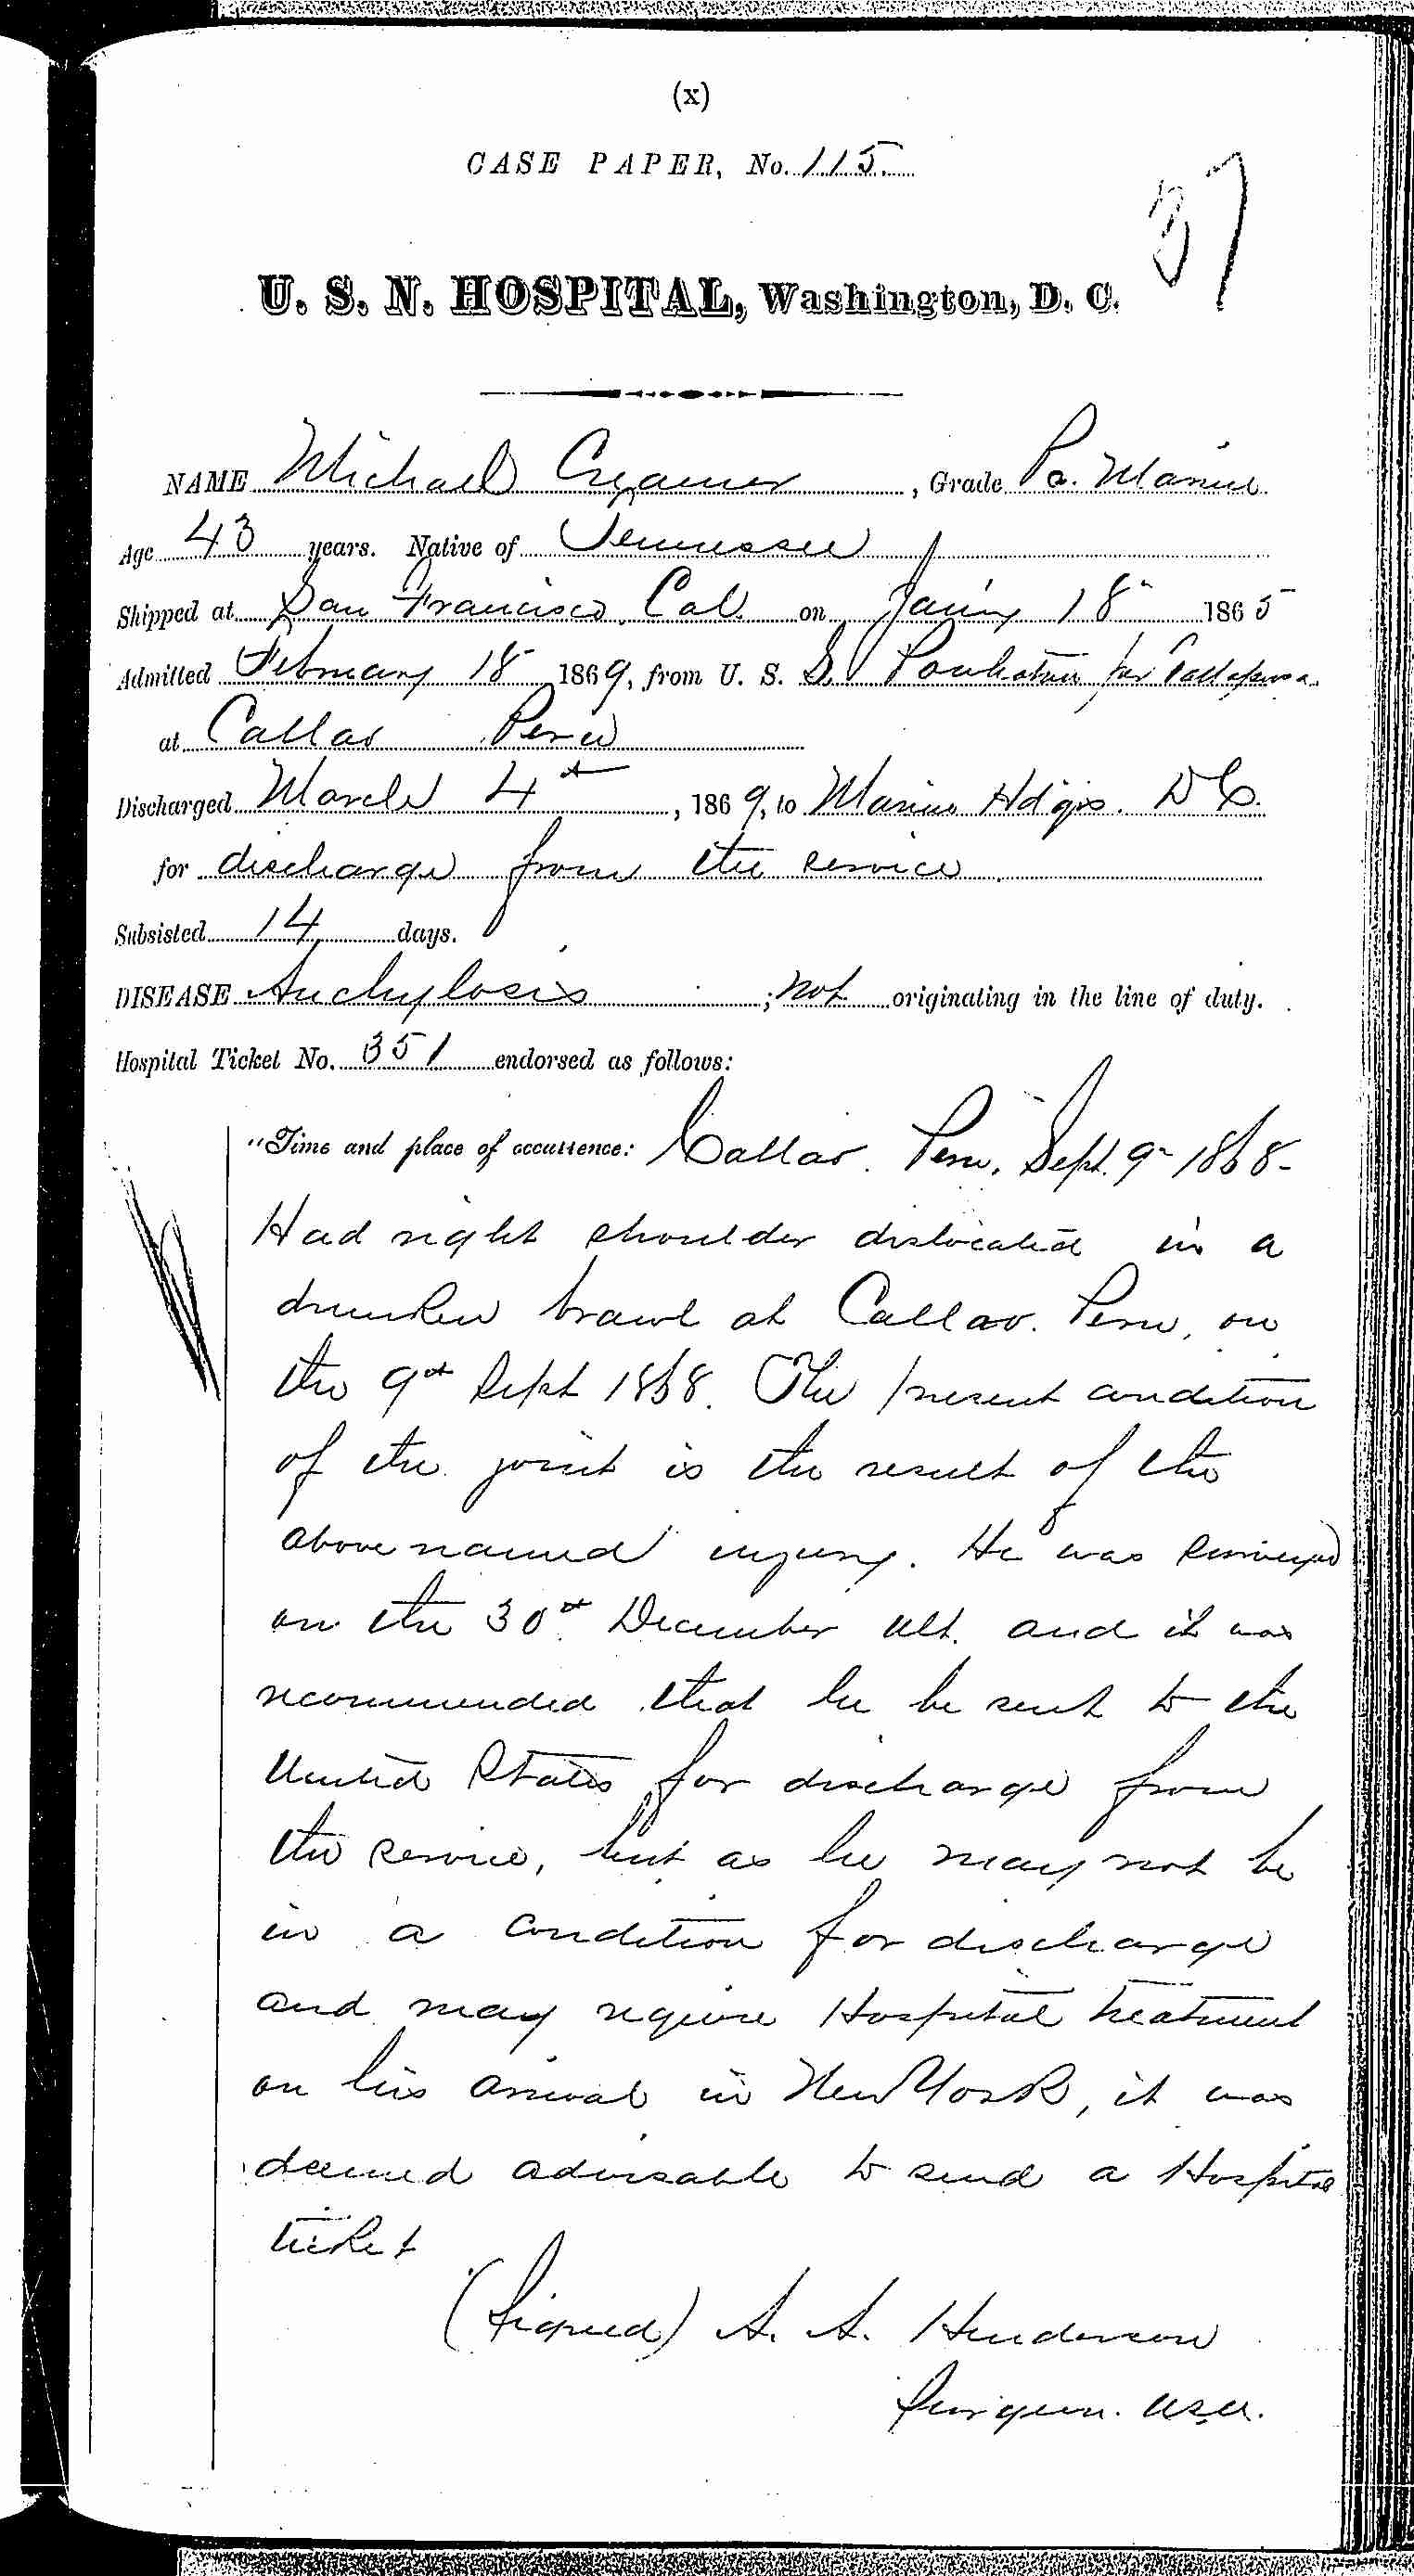 (x)
CASE PAPER, No. 115.
37
U. S. N. HOSPITAL, Washington, D. C.
NAME Michael Creamer, Grade Pr. Marine
Age 43 years. Native of Tennessee
Shipped at San Francisco, Cal. on Jan'y 18" 1865
Admitted February 18 1869, from U. S. S. Powhatan for Tallapoosa
at Callao Peru
Discharged March 4th, 1869, to Marine Hdqrs. D C.
for discharge from the service.
Subsisted 14 days.
DISEASE Anchylosis; not originating in the line of duty.
Hospital Ticket No. 351 endorsed as follows:
"Time and place of occurrence: Callao. Peru, Sept. 9" 1868-
Had right shoulder dislocated in a
drunken brawl at Callao. Peru, on
the 9th Sept 1868. The present condition
of the joint is the result of the
above named injury. He was surveyed
on the 30th December ult. and it was
recommended that he be sent to the
United States for discharge from
the service, but as he may not be
in a condition for discharge
and may require Hospital treatment
on his arrival in New York, it was
deemed advisable to send a Hospital
ticket
(Signed) A. A. Henderson
Surgeon. U.S.N.